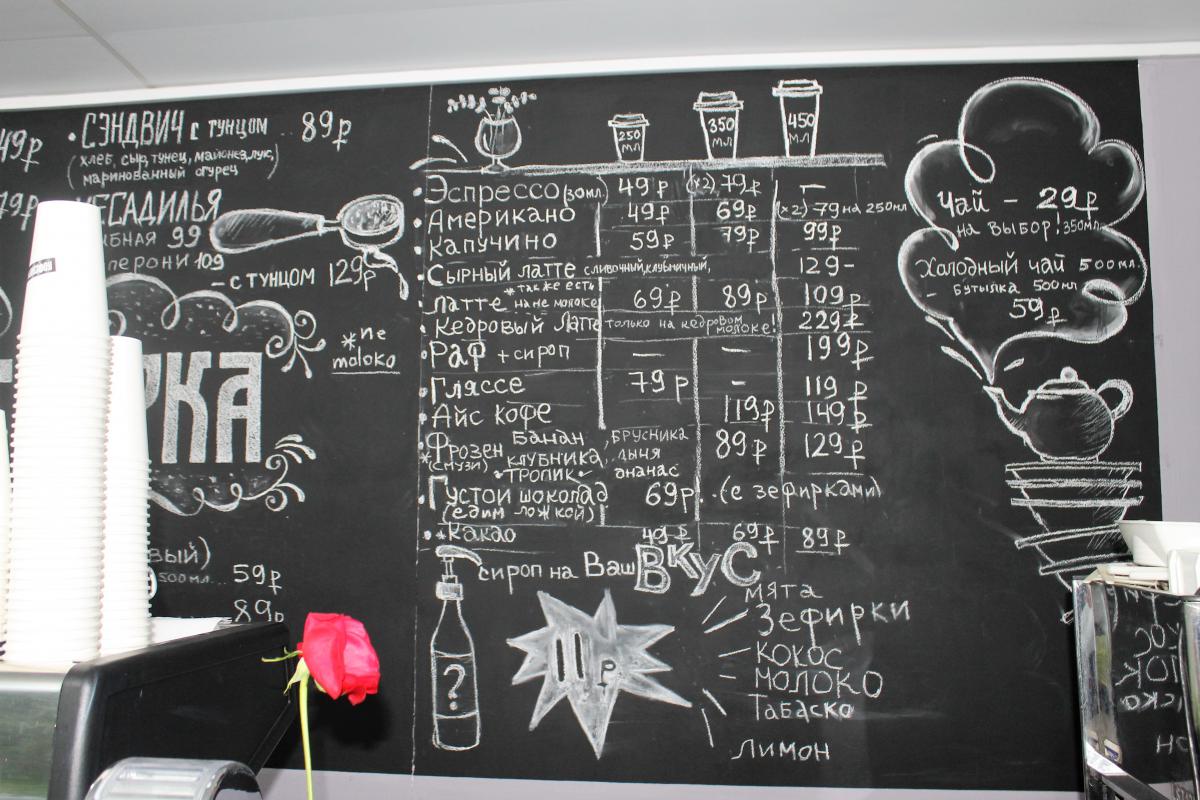 49₽ • СЭНДВИЧ с тунцом .. 89₽
(хлеб, сыр, тунец, майонез, лук,
маринованный огурец)
79₽ КЕСАДИЛЬЯ
99
перони 109
- с тунцом 129₽
*не
молоко
РКА
вый)
500 мл... 59₽
89₽
250 мл 350 мл 450 мл
• Эспрессо (30мл) 49₽ (x2) 79₽ –
• Американо 49₽ 69₽ (x2) 79 на 250мл
• Капучино 59₽ 79₽ 99₽
• Сырный латте сливочный, клубничный, 129-
• Латте *также есть на не молоке 69₽ 89₽ 109₽
• Кедровый Латте только на кедровом молоке! 229₽
• Раф + сироп — — 199₽
• Гляссе 79₽ – 119₽
• Айс кофе 119₽ 149₽
• Фрозен Банан Брусника 89₽ 129₽
*(смузи) клубника, дыня
• тропик ананас
• Густой шоколад 69₽...(с зефирками)
(едим ложкой)
• *Какао 49₽ 69₽ 89₽
сироп на Ваш ВКУС
?
11₽
мята
Зефирки
Кокос
молоко
Табаско
лимон
Чай – 29₽
на выбор! 350мл
Холодный чай 500мл.
– бутылка 500мл
59₽